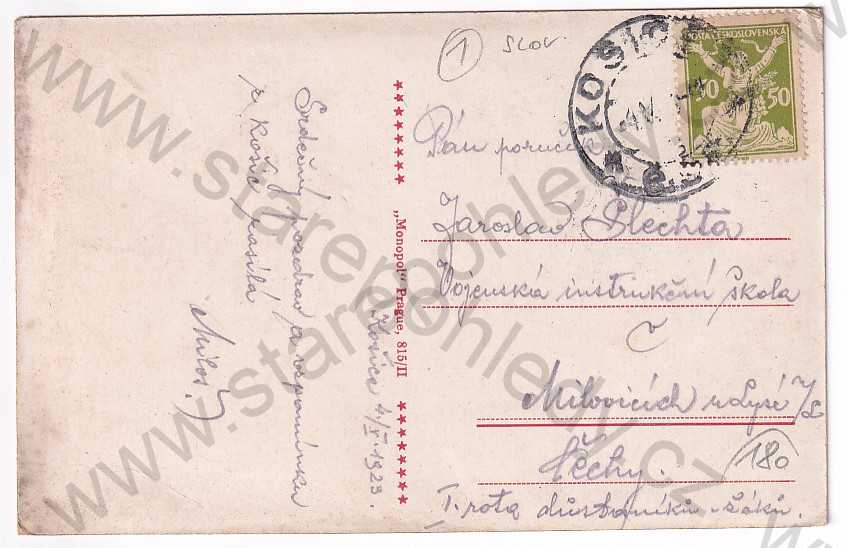 Srdečný pozdrav a vzpomínku
z Košic zasílá
Miloš.
Košice 4/V 1923.
„Monopol“ Prague, 815/II
1
SLOV
KOSICE
POŠTA ČESKOSLOVENSKÁ
50 50
Pán poručík
Jaroslav Plechta
Vojenská instrukční škola
v
Milovicích n Lysé n/L
Čechy.
180
I. rota důstojníků - žáků.
www.starepohledy.cz